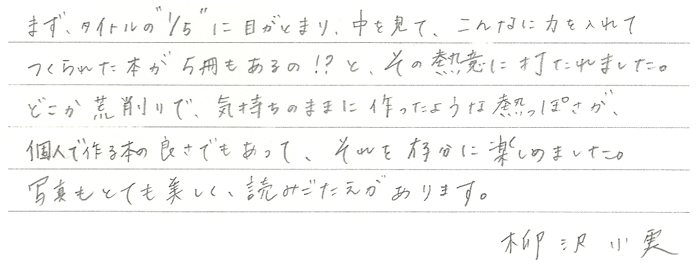 まず、タイトルの"1/5"に目がとまり、中を見て、こんなに力を入れて
つくられた本が5冊もあるの!?と、その熱意に打たれました。
どこか荒削りで、気持ちのままに作ったような熱っぽさが、
個人で作る本の良さでもあって、それを存分に楽しめました。
写真もとても美しく、読みごたえがあります。
柳沢小実